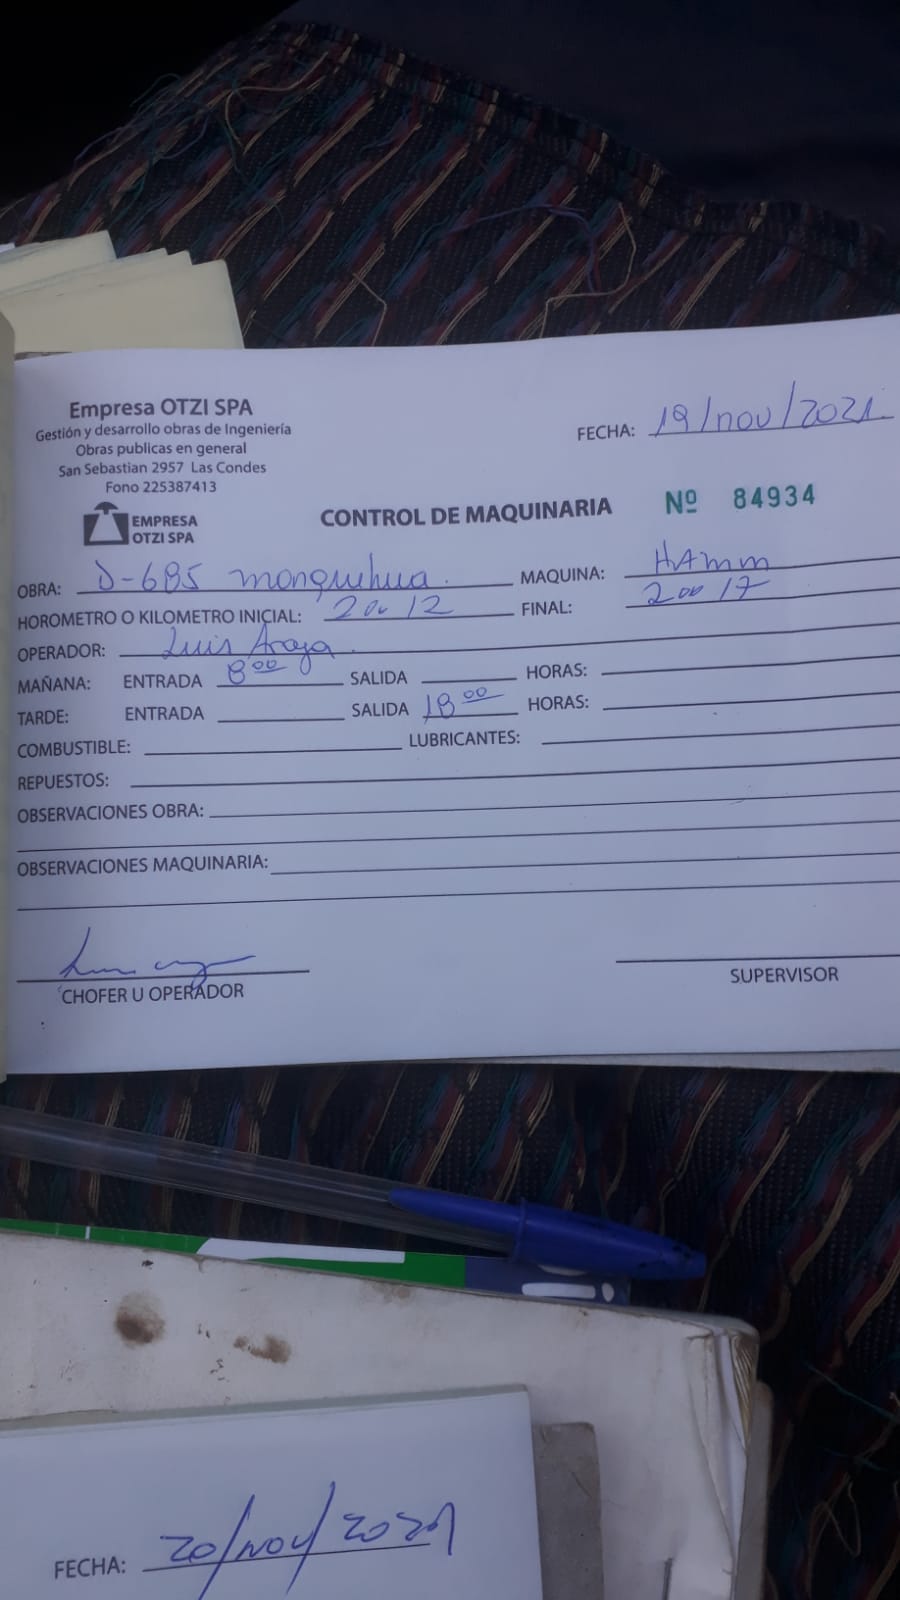 Empresa OTZI SPA
Gestión y desarrollo obras de Ingeniería
Obras publicas en general
San Sebastian 2957 Las Condes
Fono 225387413
EMPRESA
OTZI SPA
FECHA: 19/nov/2021
CONTROL DE MAQUINARIA Nº 84934
OBRA: D-685 monquehua. MAQUINA: HAMM
HOROMETRO O KILOMETRO INICIAL: 20012 FINAL: 20017
OPERADOR: Luis Araya.
MAÑANA: ENTRADA 8:00 SALIDA HORAS:
TARDE: ENTRADA SALIDA 18:00 HORAS:
COMBUSTIBLE: LUBRICANTES:
REPUESTOS:
OBSERVACIONES OBRA:
OBSERVACIONES MAQUINARIA:
CHOFER U OPERADOR SUPERVISOR
FECHA: 20/nov/2021